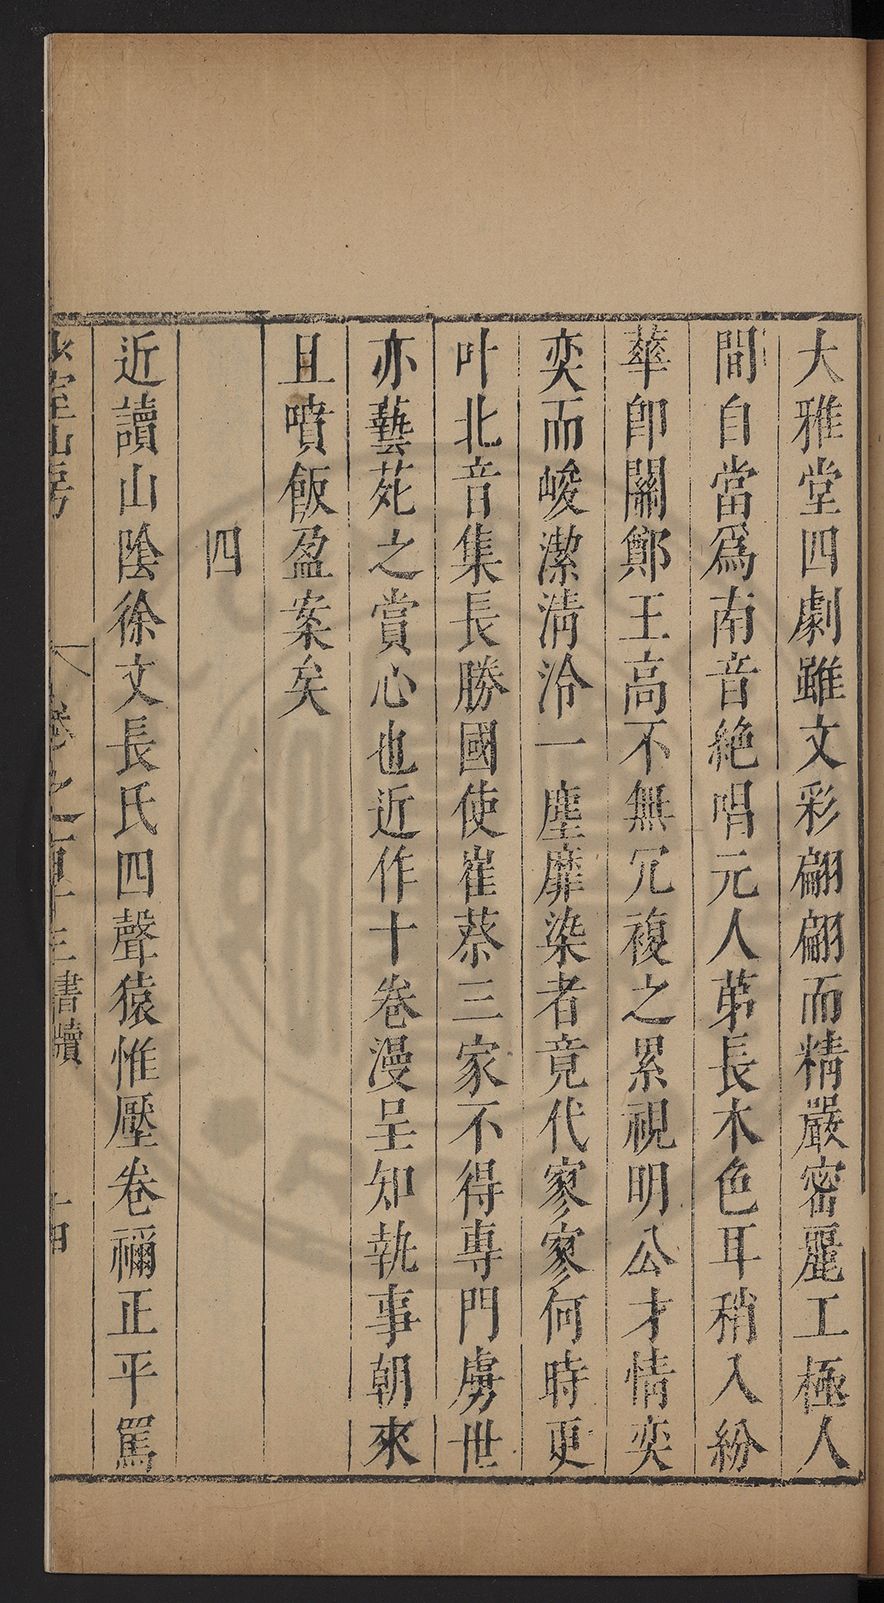 大雅堂四劇雖文彩翩翩而精嚴密麗工極人
間自當爲南音絶唱元人苐長本色耳稍入紛
華卽關鄭王高不無冗複之累視明公才情奕
奕而峻潔淸泠一塵靡染者竟代寥寥何時更
叶北音集長勝國使崔蔡三家不得專門虜世
亦藝苑之賞心也近作十卷漫呈知執事朝來
且噴飯盈案矣
四
近讀山陰徐文長氏四聲猿惟壓卷禰正平罵
室山房 卷之百十三書牘 十四